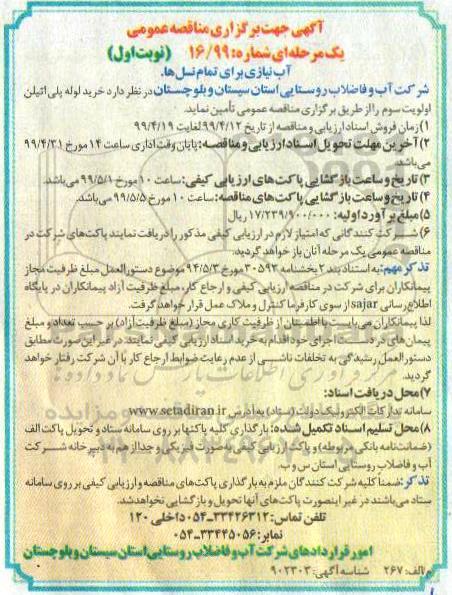 آگهی جهت برگزاری مناقصه عمومی
یک مرحله ای شماره: ۱۶/۹۹ (نوبت اول)
آب نیازی برای تمام نسل ها.
شرکت آب و فاضلاب روستایی استان سیستان و بلوچستان در نظر دارد خرید لوله پلی اتیلن
اولویت سوم را از طریق برگزاری مناقصه عمومی تأمین نماید.
۱) زمان فروش اسناد ارزیابی و مناقصه از تاریخ ۹۹/۴/۱۲ لغایت ۹۹/۴/۱۹
۲) آخرین مهلت تحویل اسناد ارزیابی و مناقصه: پایان وقت اداری ساعت ۱۴ مورخ ۹۹/۴/۳۱
می باشد.
۳) تاریخ و ساعت بازگشایی پاکت های ارزیابی کیفی: ساعت ۱۰ مورخ ۹۹/۵/۱ می باشد.
۴) تاریخ و ساعت بازگشایی پاکت های مناقصه: ساعت ۱۰ مورخ ۹۹/۵/۵ می باشد.
۵) مبلغ برآورد اولیه: ۱۷/۲۳۹/۹۰۰/۰۰۰ ریال
۶) شرکت کنندگانی که امتیاز لازم در ارزیابی کیفی مذکور را دریافت نمایند پاکت های شرکت در
مناقصه عمومی یک مرحله آنان باز خواهد گردید.
تذکر مهم: به استناد بند ۲ بخشنامه ۳۰۵۹۲ مورخ ۹۴/۵/۳ موضوع دستورالعمل مبلغ ظرفیت مجاز
پیمانکاران برای شرکت در مناقصه ارزیابی کیفی و ارجاع کار، مبلغ ظرفیت آزاد پیمانکاران در پایگاه
اطلاع رسانی sajar از سوی کارفرما کنترل و ملاک عمل قرار خواهد گرفت.
لذا پیمانکاران می بایست با اطمینان از ظرفیت کاری مجاز (مبلغ ظرفیت آزاد) بر حسب تعداد و مبلغ
پیمان های در دست اجرای خود اقدام به خرید اسناد ارزیابی کیفی نمایند. در غیر این صورت مطابق
دستورالعمل رسیدگی به تخلفات ناشی از عدم رعایت ضوابط ارجاع کار با آن شرکت رفتار خواهد
گردید.
۷) محل دریافت اسناد:
سامانه تدارکات الکترونیک دولت (ستاد) به آدرس www.setadiran.ir
۸) محل تسلیم اسناد تکمیل شده: بارگذاری کلیه پاکتها بر روی سامانه ستاد و تحویل پاکت الف
(ضمانتنامه بانکی مربوطه) و پاکت ارزیابی کیفی به صورت فیزیکی و جدا از هم به دبیرخانه شرکت
آب و فاضلاب روستایی استان س و ب.
تذکر: ضمناً کلیه شرکت کنندگان ملزم به بارگذاری پاکت های مناقصه و ارزیابی کیفی بر روی سامانه
ستاد می باشند در غیر اینصورت پاکت های آنها تحویل و بازگشایی نخواهد شد.
تلفن تماس: ۳۳۴۲۶۳۱۲-۰۵۴ داخلی ۱۲۰
نمابر: ۳۳۴۴۵۰۵۶-۰۵۴
امور قراردادهای شرکت آب و فاضلاب روستایی استان سیستان و بلوچستان
م الف: ۲۶۷ شناسه آگهی: ۹۰۲۳۰۳